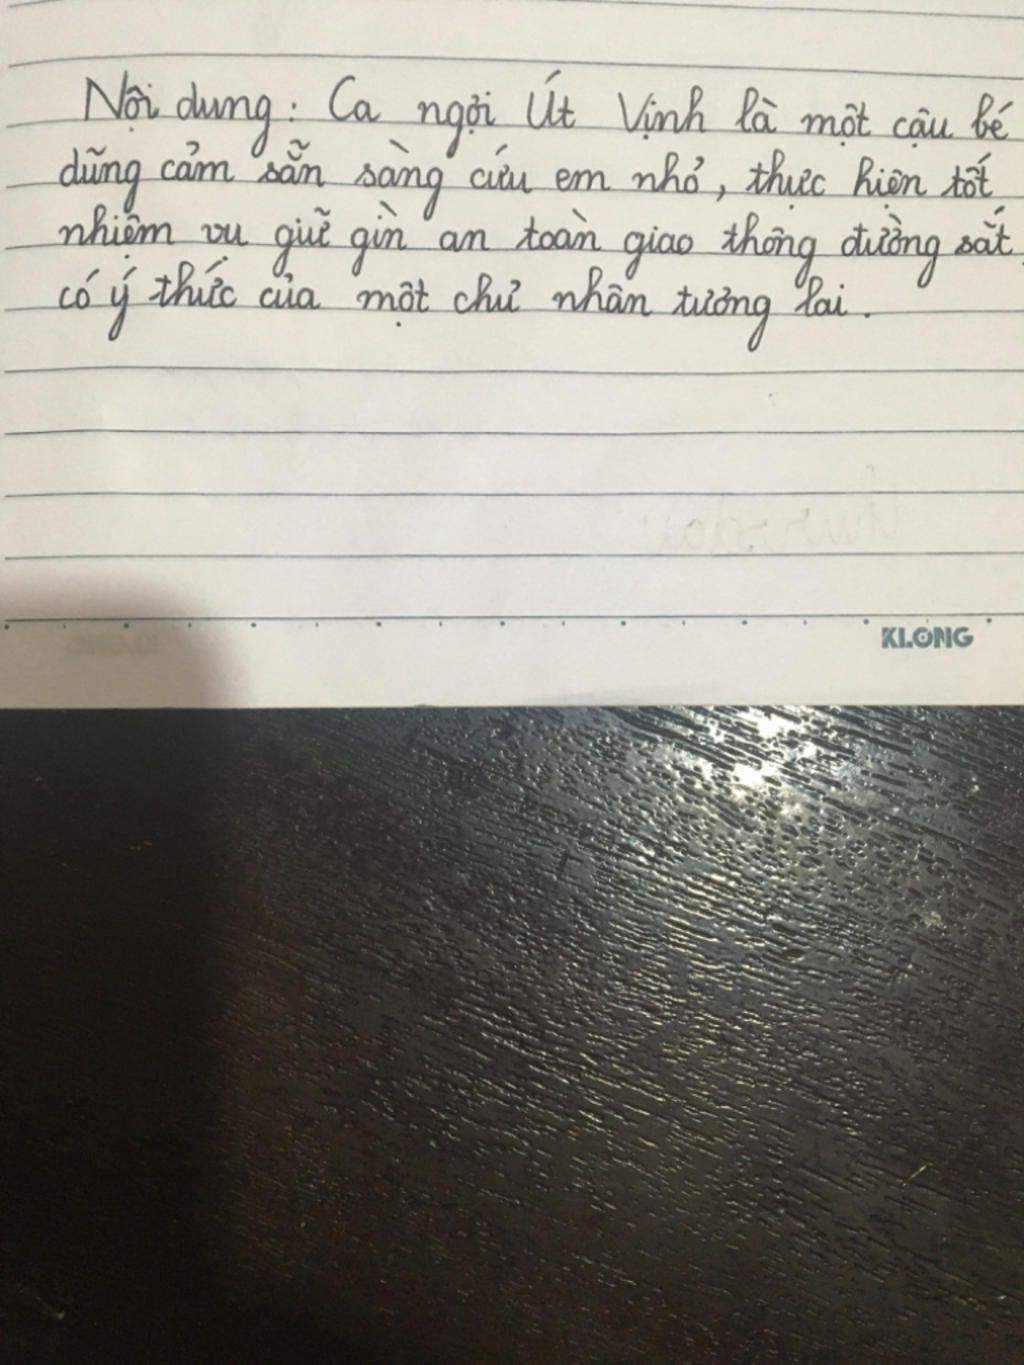 Nội dung: Ca ngợi Út Vịnh là một cậu bé
dũng cảm sẵn sàng cứu em nhỏ, thực hiện tốt
nhiệm vụ giữ gìn an toàn giao thông đường sắt
có ý thức của một chủ nhân tương lai.
KLONG